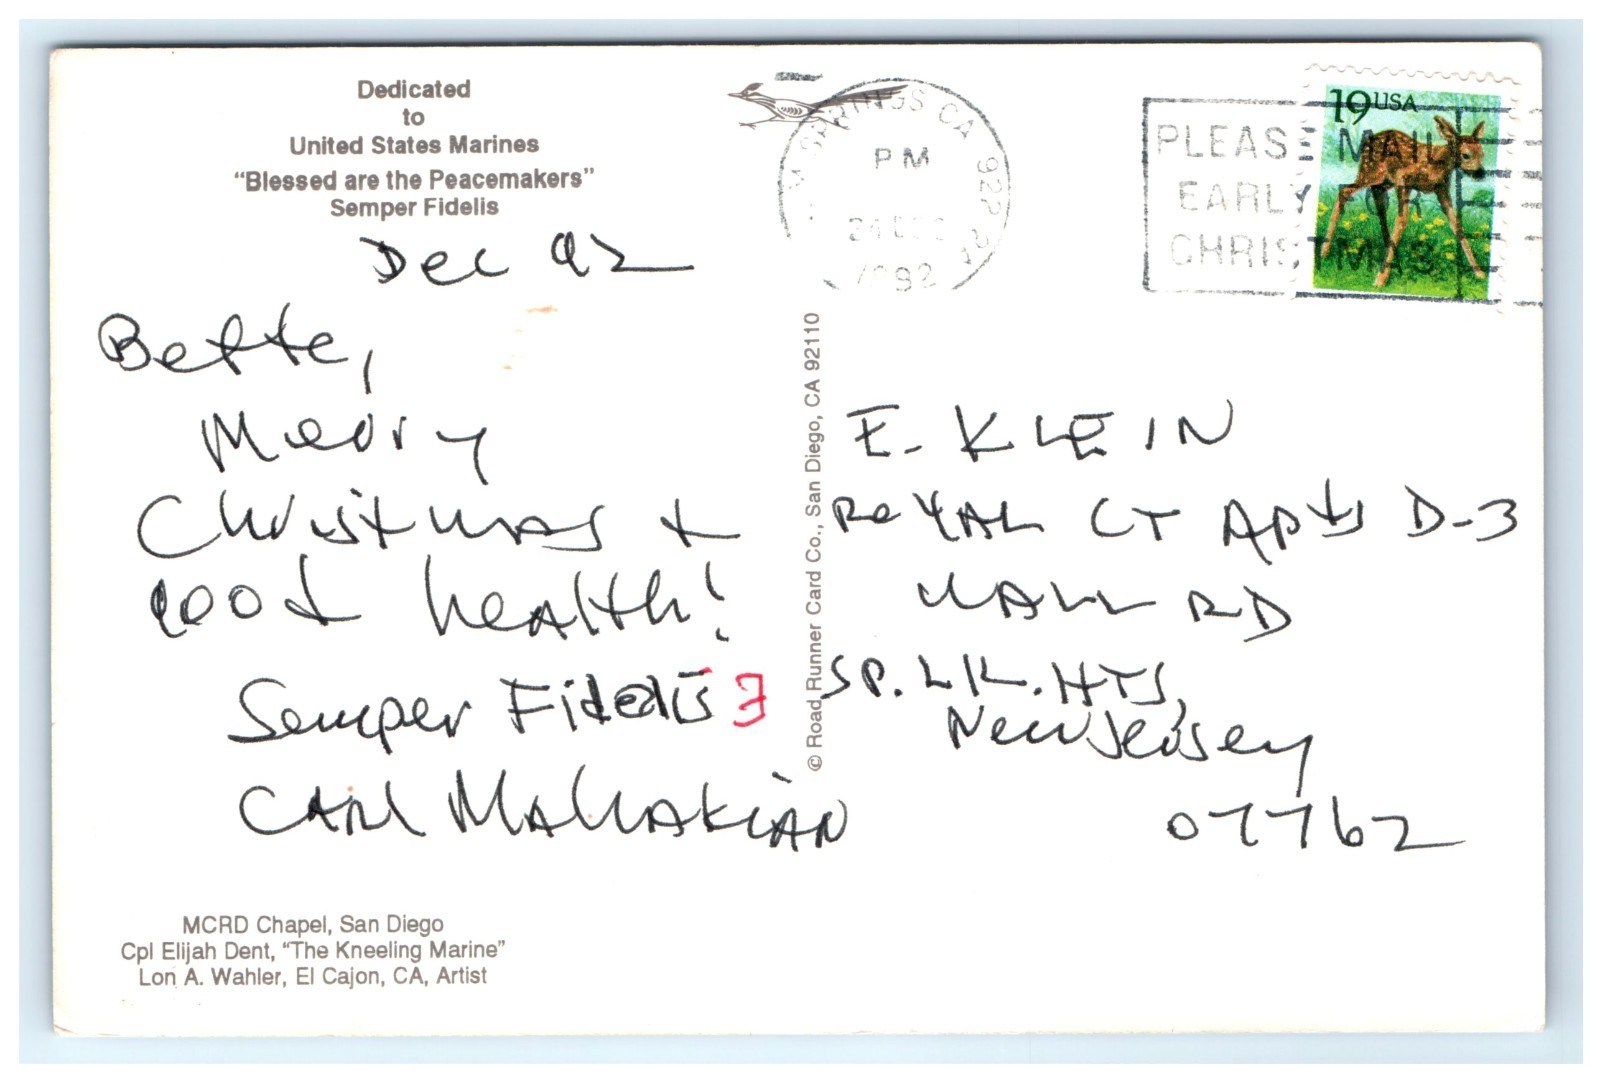 Dedicated
to
United States Marines
"Blessed are the Peacemakers"
Semper Fidelis
Dec 92
Bette,
Merry
Christmas +
good health!
Semper Fidelis
Carl Mahakian
MCRD Chapel, San Diego
Cpl Elijah Dent, "The Kneeling Marine"
Lon A. Wahler, El Cajon, CA, Artist
© Road Runner Card Co., San Diego, CA 92110
SPRINGS CA 922
PM
24 DEC
1992
PLEASE MAIL
EARLY FOR
CHRISTMAS
19 USA
E. KLEIN
ROYAL CT APTS D-3
RD
SP. LK. HTS,
New Jersey
07762